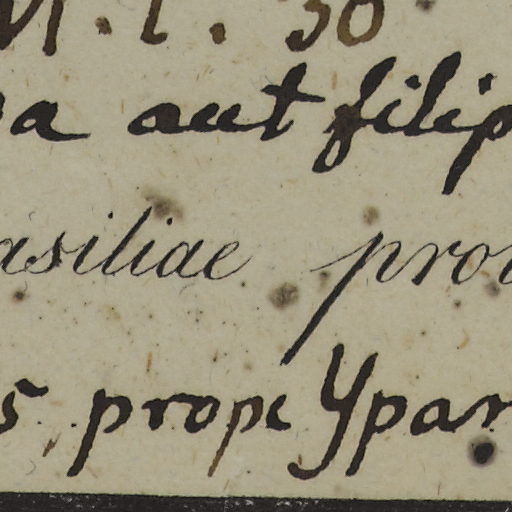 . l. 30
a aut filip
asiliae pro
s prope Ypar